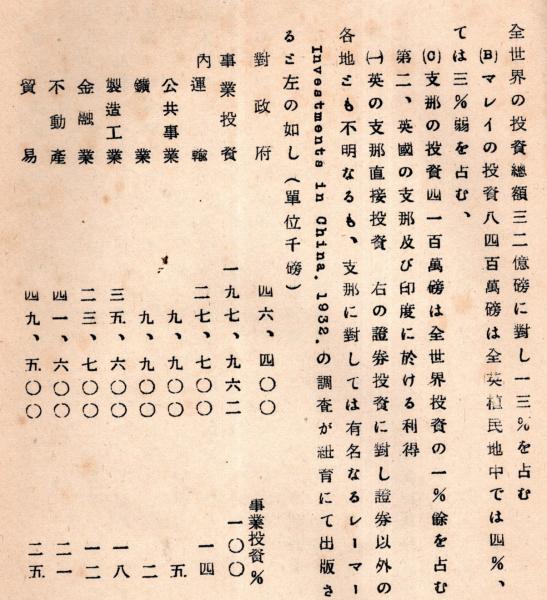 全世界の投資總額三二億磅に對し一三％を占む
(B)マレイの投資八四百萬磅は全英植民地中では四％、
ては三％弱を占む、
(C)支那の投資四一百萬磅は全世界投資の一％餘を占む
第二、英國の支那及び印度に於ける利得
㈠英の支那直接投資　右の證券投資に對し證券以外の
各地とも不明なるも、支那に對しては有名なるレーマー
Investments in China. 1932. の調査が紐育にて出版さ
ると左の如し（單位千磅）
事業投資％
對政府　四六、四〇〇
事業投資　一九七、九六二　一〇〇
內運輸　二七、七〇〇　一四
公共事業　九、九〇〇　五
鑛業　九、九〇〇　二
製造工業　三五、六〇〇　一八
金融業　二三、七〇〇　一二
不動產　四一、六〇〇　二一
貿易　四九、五〇〇　二五